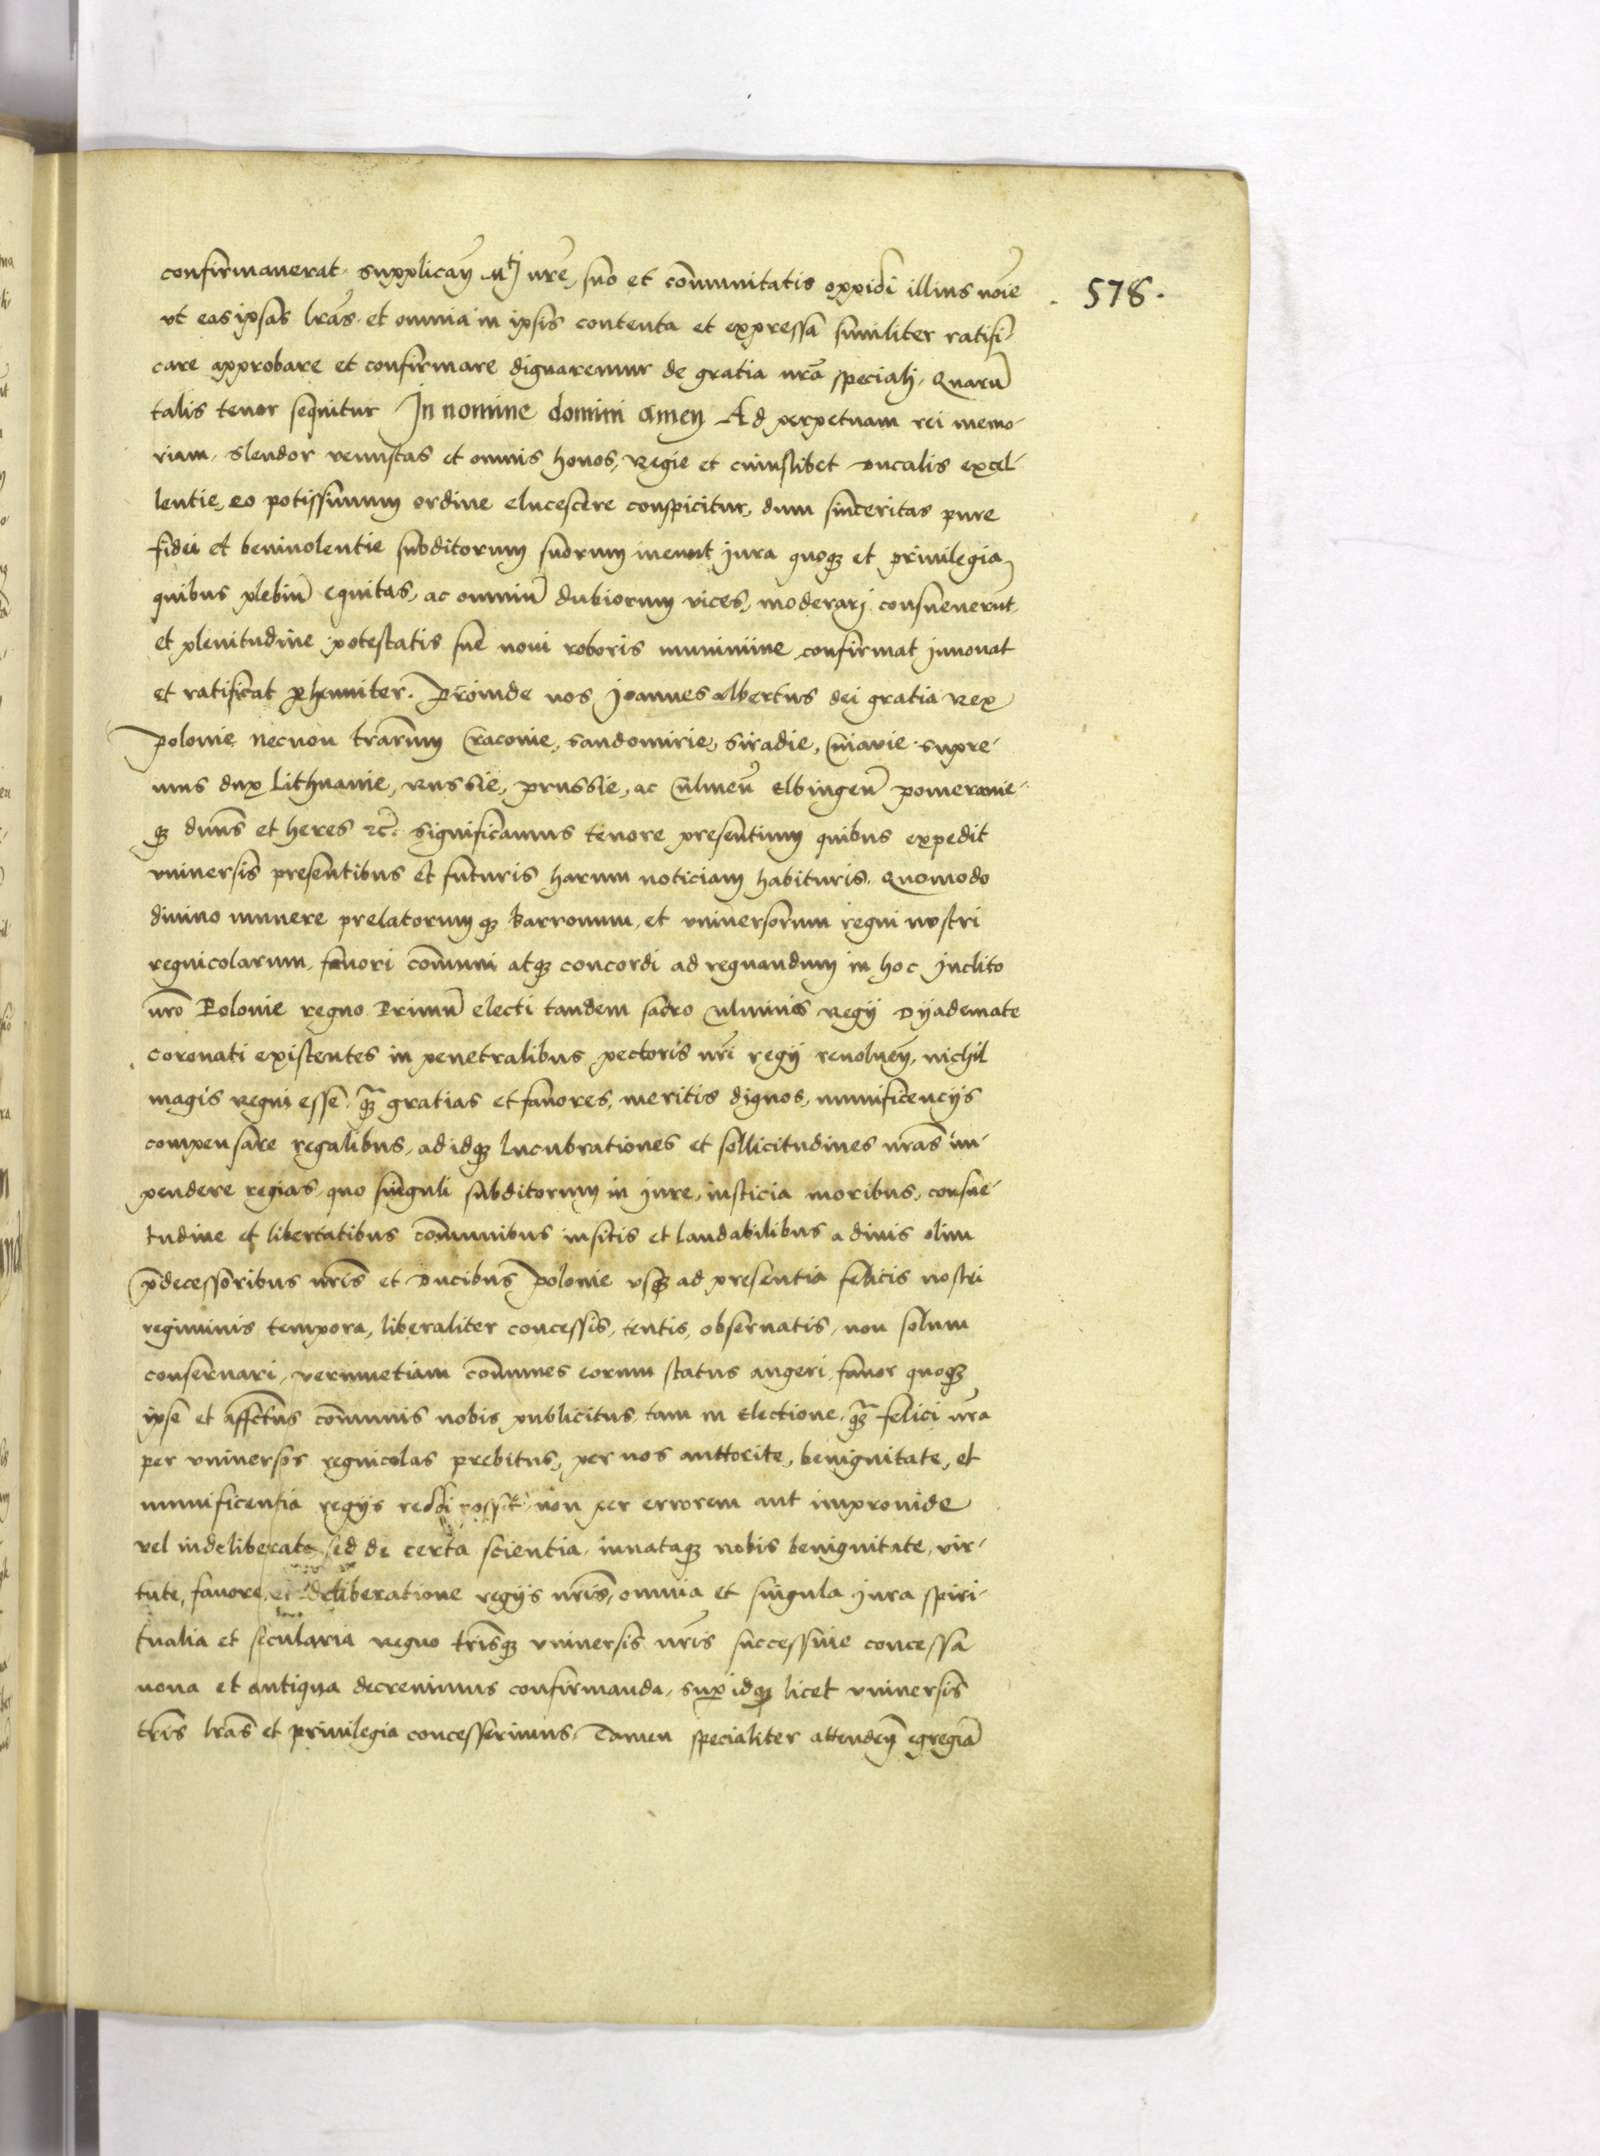 confirmauerat. supplicań Mtj nr̄e, suo et com̄unitatis oppidi illius nōie
. 578 .
vt eas ipsas lrās et omnia in ipsis contenta et expressa similiter ratifi-
care approbare et confirmare dignaremur de gratia nrā speciali, Quarū
talis tenor sequitur In nomine domini amen Ad perpetuam rei memo-
riam. Slendor venustas et omnis honos, Regie et cuiuslibet Ducalis excel-
lentie, eo potissimum ordine elucescere conspicitur, dum sinceritas pure
fidei et beniuolentie subditorum suorum meruit jura quoqꝫ et priuilegia
quibus plebiū equitas, ac omniū dubiorum vices, moderarj consueuerūt
et plenitudine potestatis sue noui roboris munimine confirmat jnnouat
et ratificat ꝑhenniter. Proinde nos Joannes Albertus dei gratia Rex
Polonie necnon trārum Cracouie, Sandomirie, Siradie, Cuiauie. supre-
mus dux Lithuanie, Russie, Prussie, ac Culmeń Elbingeń Pomeranie-
qꝫ dnūs et heres ꝛc̄. Significamus tenore presentium quibus expedit
vniuersis presentibus et futuris harum noticiam habituris. Quomodo
diuino munere prelatorumqꝫ barronum, et vniuersorum regni nostri
regnicolarum, fauori com̄uni atqꝫ concordi ad regnandum in hoc jnclito
nrō Polonie regno Primū electi tandem sacro Culminis Regij Dyademate
coronati existentes in penetralibus pectoris nrī regij reuolueń, nichil
magis regni esse. qꝫ̄ gratias et fauores, meritis dignos, munificencijs
compensare regalibus, ad idqꝫ lucubrationes et sollicitudines nrās im-
pendere regias, quo singuli subditorum in jure, iusticia moribus, consue-
tudine et libertatibus com̄unibus insitis et laudabilibus a diuis olim
p̄decessoribus nrīs et Ducibus Polonie vsqꝫ ad presentia felicis nostri
regiminis tempora, liberaliter concessis, tentis, obseruatis, non solum
conseruari, verumetiam com̄unes eorum status augeri, fauor quoqꝫ
ipse et affctus com̄unis nobis publicitus tam in Electione, qꝫ̄ felici nrā
per vniuersos regnicolas prebitus, per nos auttorite, benignitate, et
munificentia regijs reddi possit non per errorem aut improuide
vel indeliberate sed de certa scientia, innataqꝫ nobis benignitate, vir-
tute, fauore, et deliberatione regijs nrīs, omnia et singula jura spiri-
tualia et secularia regno trīsqꝫ vniuersis nrīs successiue concessa
noua et antiqua decreuimus confirmanda, supꝭ idqꝫ licet vniuersis
trīs lrās et priuilegia concesserimus. Tamen specialiter attendeń egregiā